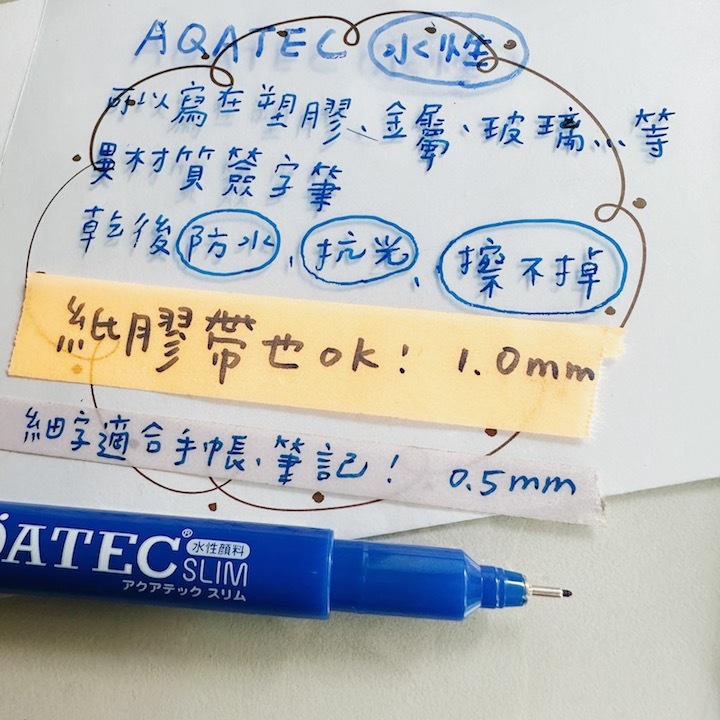 AQATEC 水性
可以寫在塑膠、金屬、玻璃...等
異材質簽字筆
乾後防水、抗光、擦不掉
紙膠帶也ok! 1.0mm
細字適合手帳、筆記! 0.5mm
QATEC® 水性顔料
SLIM
アクアテック スリム